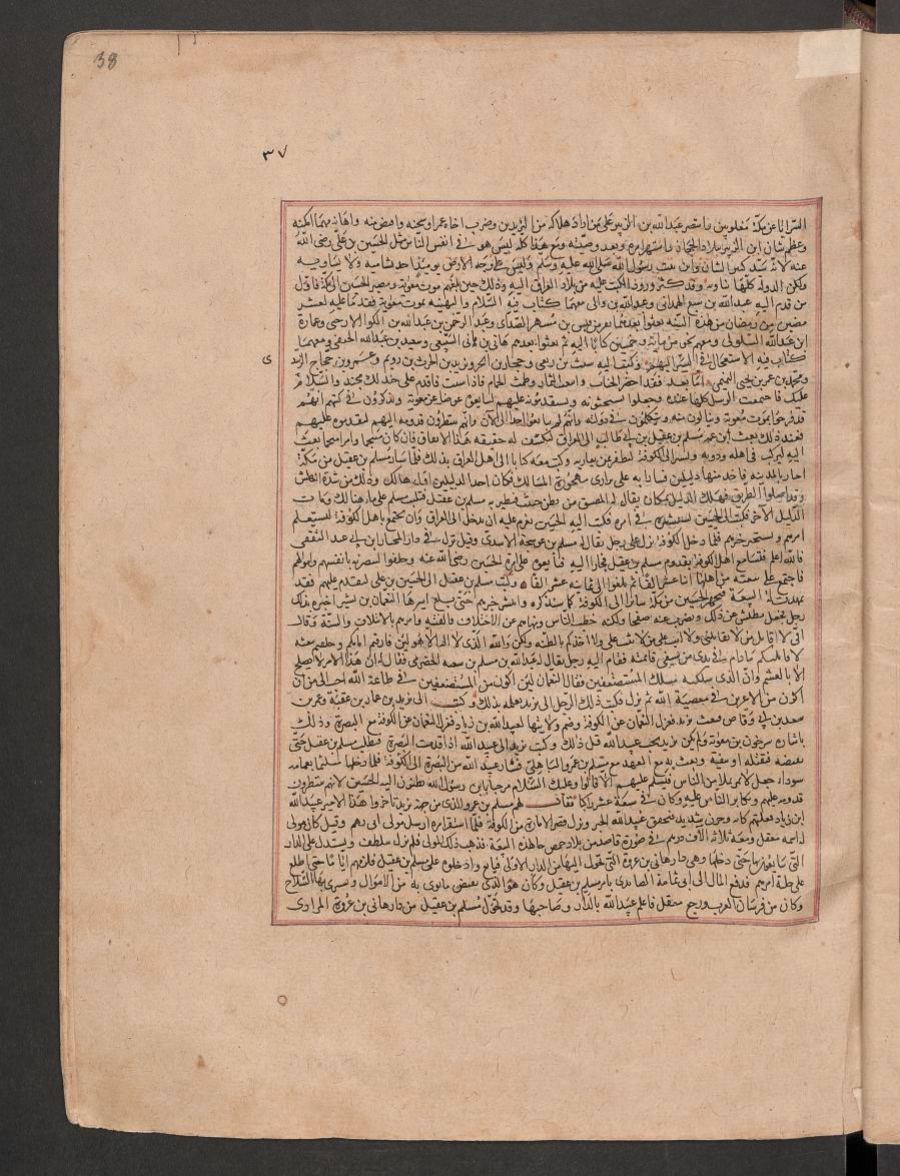 38
٣٧
السرايا عن مكة مغلوبين فاستمر عبد الله بن الزبير على من اراد هلاكه من اليزيديين وضرب اخاه عمرا وسجنه واقتص منه واهانه
وعظم شان ابن الزبير ببلاد الحجاز واشتهر امره وبعد صيته ومع هذا كله ليس هو في انفس الناس مثل الحسين بن علي رضي الله
عنه لانه سيد كبير الشان وابن بنت رسول الله صلى الله عليه وسلم وليس على وجه الارض يومئذ احد يشاميه ولا يساويه
ولكن الدولة كلها تناويه وقد كثر ورود الكتب عليه من بلاد العراق اليه وذلك حين بلغهم موت معوية ومصير الحسين الى مكة فاول
من قدم اليه عبد الله بن سبع الهمداني وعبد الله بن والى معهما كتاب فيه السلام والتهنية بموت معوية فقدما عليه لعشر
مضين من رمضان من هذه السنة ثم بعثوا بعدهما نفرا منهم قيس بن مسهر الصدائ وعبد الرحمن بن عبد الله بن الكوا الارحبي وعمارة
ابن عبد الله السلولي ومعهم نحو من ماية وخمسين كتابا اليه ثم بعثوا بعدهم هاني بن هاني السبيعي وسعيد بن عبد الله الحنفي ومعهما
كتاب فيه الاستعجال في السير اليهم وكتب اليه شبث بن ربعي وحجار بن ابحر ويزيد بن الحرث بن رويم وعمرو بن حجاج الزبيد
ى
ومحمد بن عمر بن يحيى التميمي اما بعد فقد اخضر الجناب واينعت الثمار وطمت الجام فاذا شئت فاقدم على جند لك مجند والسلام
عليك فاجتمعت الرسل كلها عنده وجعلوا يستحثونه ويستقدمونه عليهم ليبايعوه عوضا عن معوية ويذكرون في كتبهم انهم
قد فرحوا بموت معوية وينالون منه ويتكلمون في دولته وانهم لم يبايعوا احدا الى الآن وانهم ينتظرون قدومه اليهم ليقدموه عليهم
فعند ذلك بعث ابن عمه مسلم بن عقيل بن ابي طالب الى العراق ليكشف له حقيقة هذا الاتفاق فان كان متحتما وامرا محكما بعث
اليه ليركب في اهله وذويه ويسير الى الكوفة ليظفر بمن يعاديه وكتب معه كتابا الى اهل العراق بذلك فلما سار مسلم بن عقيل من مكة
اجتاز بالمدينة فاخذ منها دليلين فسارا به على براري مهجورة المسالك فكان احد الدليلين اول هالك وذلك من شدة العطش
وقد اضلوا الطريق فهلك الدليل بمكان يقال له المضيق من بطن خبيت فتطير به مسلم بن عقيل فتلبث مسلم على ما هنالك ومات
الدليل الآخر فكتب الى الحسين يستشيره في امره فكتب اليه الحسين يعزم عليه ان يدخل الى العراق وان يجتمع باهل الكوفة ليستعلم
امرهم ويستخبر خبرهم فلما دخل الكوفة نزل على رجل يقال له مسلم بن عوسجة الاسدي وقيل نزل في دار المختار بن ابي عبيد الثقفي
فالله اعلم فتسامع اهل الكوفة بقدوم مسلم بن عقيل فجاؤا اليه فبايعوه على امرة الحسين رضي الله عنه وحلفوا لينصرنه بانفسهم واموالهم
فاجتمع على بيعته من اهلها اثنا عشر الفا ثم بلغوا الى ثمانية عشر الفا وكتب مسلم بن عقيل الى الحسين بن علي ليقدم عليهم فقد
تمهدت له البيعة فتجهز الحسين من مكة سائرا الى الكوفة كما سنذكره وانتشر خبرهم حتى بلغ اميرها النعمان بن بشير اخبره بذلك
رجل فجعل يضرب عن ذلك صفحا ولكنه خطب الناس ونهاهم عن الاختلاف والفتنة وامرهم بالائتلاف والسنة وقال
اني لا اقاتل من لا يقاتلني ولا اثب على من لا يثب علي ولا آخذكم بالظنة ولكن والله الذي لا اله الا هو لئن فارقتم امامكم ونكثتم بيعته
لاقاتلنكم ما دام في يدي من سيفي قائمته فقام اليه رجل يقال له عبد الله بن مسلم بن سعيد الحضرمي فقال له ان هذا الامر لا يصلح
الا بالغشم وان الذي سلكته مسلك المستضعفين فقال النعمان لئن اكون من المستضعفين في طاعة الله احب الي من ان
اكون من الاعزين في معصية الله ثم نزل فكتب ذلك الرجل الى يزيد يعلمه بذلك وكتب الى يزيد بن عمارة بن عقبة وعمر بن
سعد بن ابي وقاص فبعث يزيد فعزل النعمان عن الكوفة وضم ولايتها لعبيد الله بن زياد فعزل النعمان عن الكوفة مع البصرة وذلك
باشارة سرجون بن معوية ولم يكن يزيد يحب عبيد الله قبل ذلك وكتب يزيد الى عبيد الله اذا قدمت البصرة فتطلب مسلم بن عقيل حتى
تعرضه فتقتله او تنفيه وبعث به مع العهد مع مسلم بن عمرو الباهلي فسار عبيد الله من البصرة الى الكوفة فلما دخلها متلثما بعمامة
سوداء جعل لا يمر بملا من الناس فيسلم عليهم الا قالوا وعليك السلام مرحبا بابن رسول الله يظنون انه الحسين لانهم ينتظرون
قدومه عليهم وتكاثر الناس عليه وكان في سبعة عشر راكبا فقال لهم مسلم بن عمرو الذي من جهة يزيد تاخروا هذا الامير عبيد الله
ابن زياد فعلتهم كآبة وحزن شديد فتحقق عبيد الله الخبر ونزل قصر الامارة من الكوفة فلما استقر امره ارسل مولى ابي رهم وقيل كان مولى
له اسمه معقل ومعه ثلاثة آلاف درهم في صورة قاصد من بلاد حمص جاء لهذه البيعة فذهب ذلك المولى فلم يزل يتلطف ويستدل على الدار
التي يبايعون بها حتى دخلها وهي دار هاني بن عروة التي تحول اليها من الدار الاولى فبايع وادخلوه على مسلم بن عقيل فلزمهم اياما حتى اطلع
على جلية امرهم فدفع المال الى ابي ثمامة الصائدي بامر مسلم بن عقيل وكان هو الذي يقبض ما يوتى به من الاموال ويشتري بها السلاح
وكان من فرسان العرب ورجع معقل فاعلم عبيد الله بالدار وصاحبها وقد تحول مسلم بن عقيل من دار هاني بن عروة المرادي